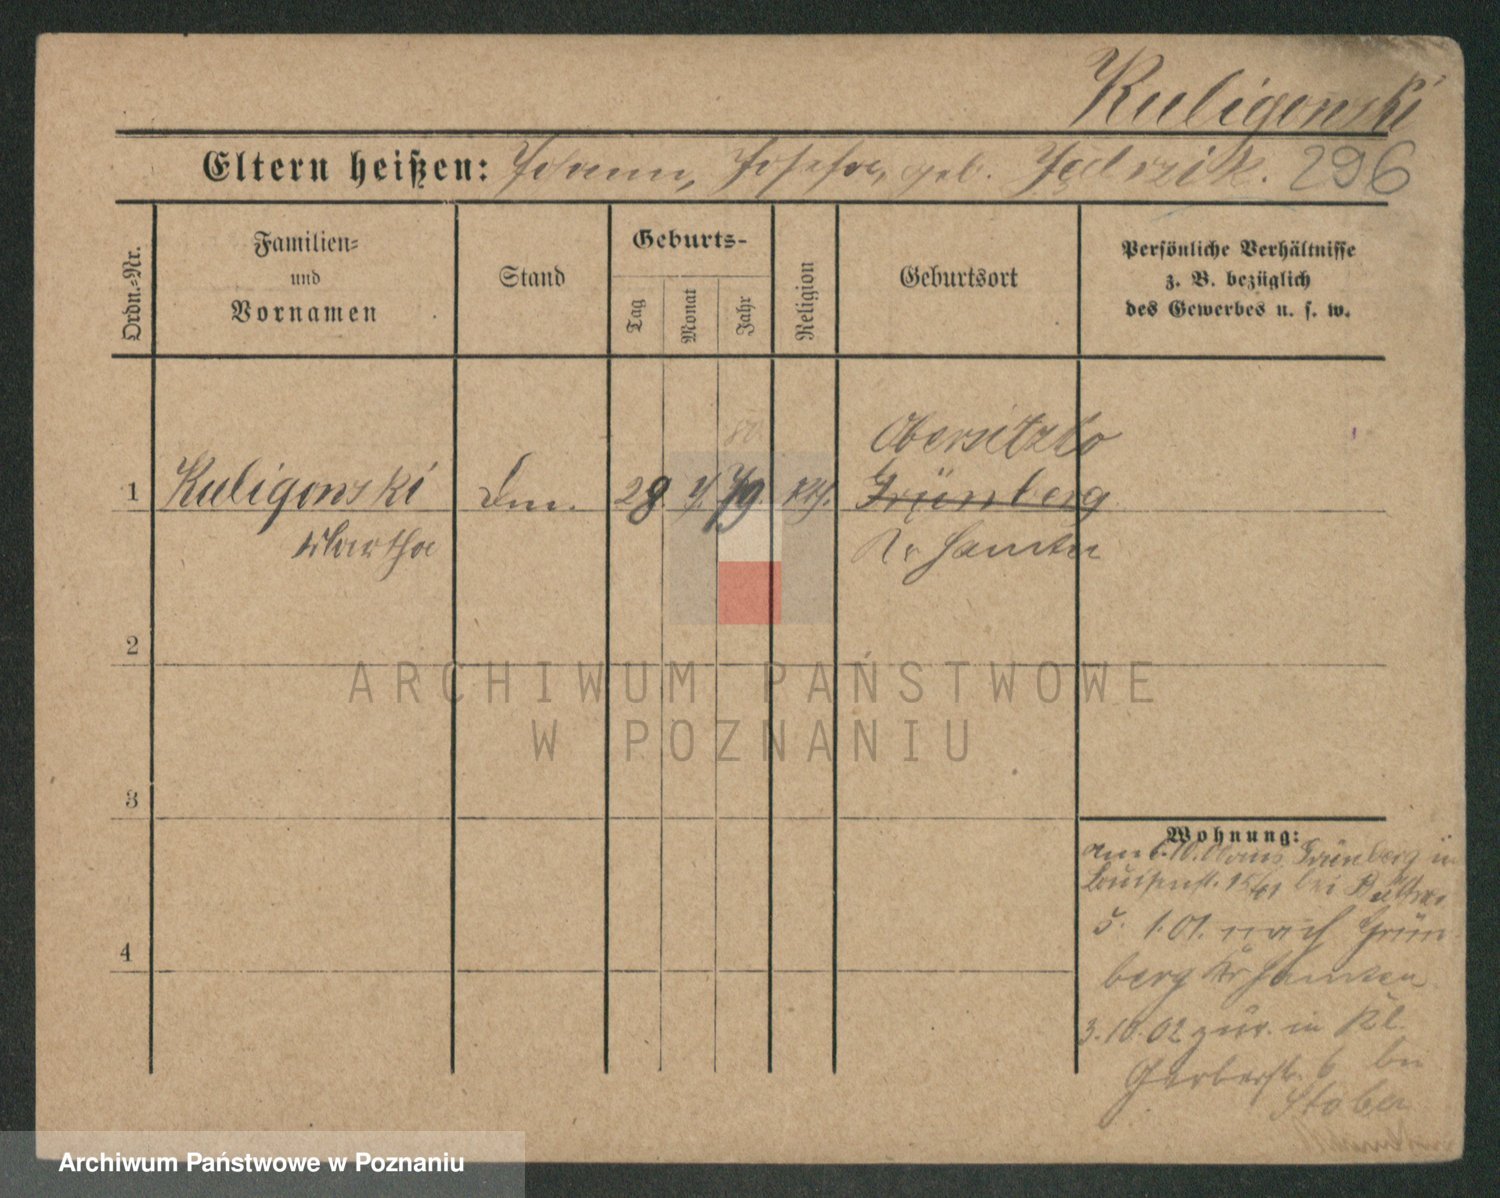 Kuligowski
Eltern heißen: Johann, Josefa, geb. Jędrzik. 296
Ordn.-Nr.
Familien-
und
Vornamen
Stand
Geburts-
Tag
Monat
Jahr
Religion
Geburtsort
Persönliche Verhältnisse
z. B. bezüglich
des Gewerbes u. s. w.
80
Obersitzko
1 Kuligowski 28. 79. kth. Grünberg
Martha Kr Samter
2
ARCHIWUM PAŃSTWOWE
W POZNANIU
3
Wohnung:
am 6.10.00 aus Grünberg in
Louisenst. 15 bei
5. 1.01. nach Grün
4
berg Kr Samter
3.10.02 zur. in Kl.
Gerberstr. 6 bei
Stober
Archiwum Państwowe w Poznaniu